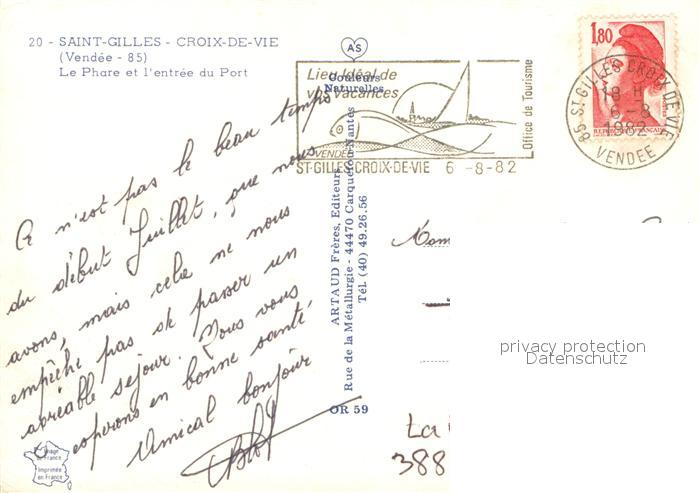 20 - SAINT-GILLES - CROIX-DE-VIE
(Vendée - 85)
Le Phare et l'entrée du Port
AS
Couleurs
Naturelles
Lieu Idéal de
vos vacances
VENDÉE
ST-GILLES-CROIX-DE-VIE 6-8-82
Office de Tourisme
1,80
REPUBLIQUE FRANÇAISE
85 ST-GILLES CROIX DE VIE
18 H
6-8
1982
VENDEE
Ce n'est pas le beau temps
du début Juillet, que nous
avons, mais cela ne nous
empêche pas de passer un
agréable séjour. Nous vous
espérons en bonne santé,
Amical bonjour
ARTAUD Frères, Editeurs
Rue de la Métallurgie - 44470 Carquefou-Nantes
Tél. (40) 49.26.56
OR 59
Image
de France
Imprimée
en France
privacy protection
Datenschutz
La
388